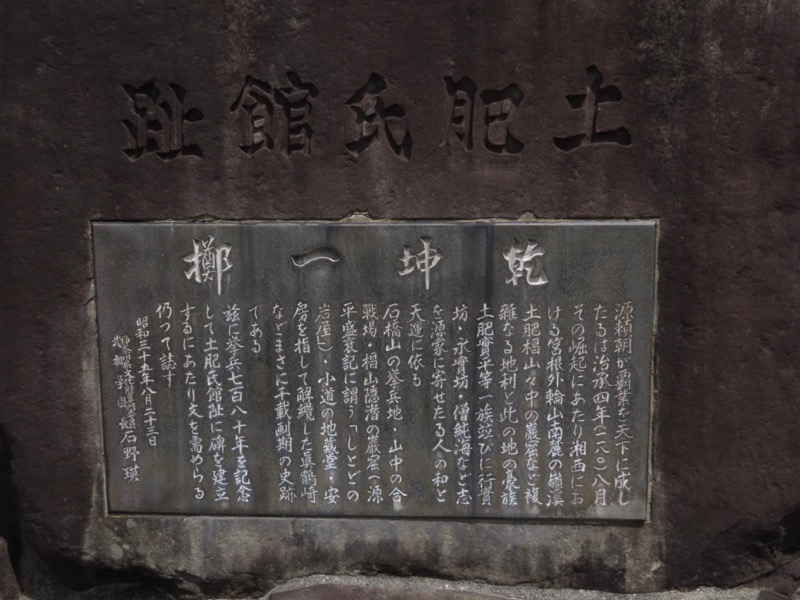 土肥氏館趾
乾坤一擲
源頼朝が覇業を天下に成し
たるは治承四年(一一八〇)八月
その崛起にあたり湘西にお
ける筥根外輪山南麓の嶺渓
土肥椙山々中の巌窟など複
雑なる地利と此の地の豪族
土肥實平等一族並びに行實
坊・永實坊・僧純海など志
を源家に寄せたる人の和と
天運に依る
石橋山の挙兵地・山中の合
戦場・椙山隠潜の巌窟(源
平盛衰記に謂う「しとどの
岩屋」)・小道の地蔵堂・安
房を指して解纜した真鶴崎
などまさに千載画期の史跡
である
茲に挙兵七百八十年を記念
して土肥氏館趾に碑を建立
するにあたり文を需めらる
仍つて誌す
昭和三十五年八月二十三日
石野瑛